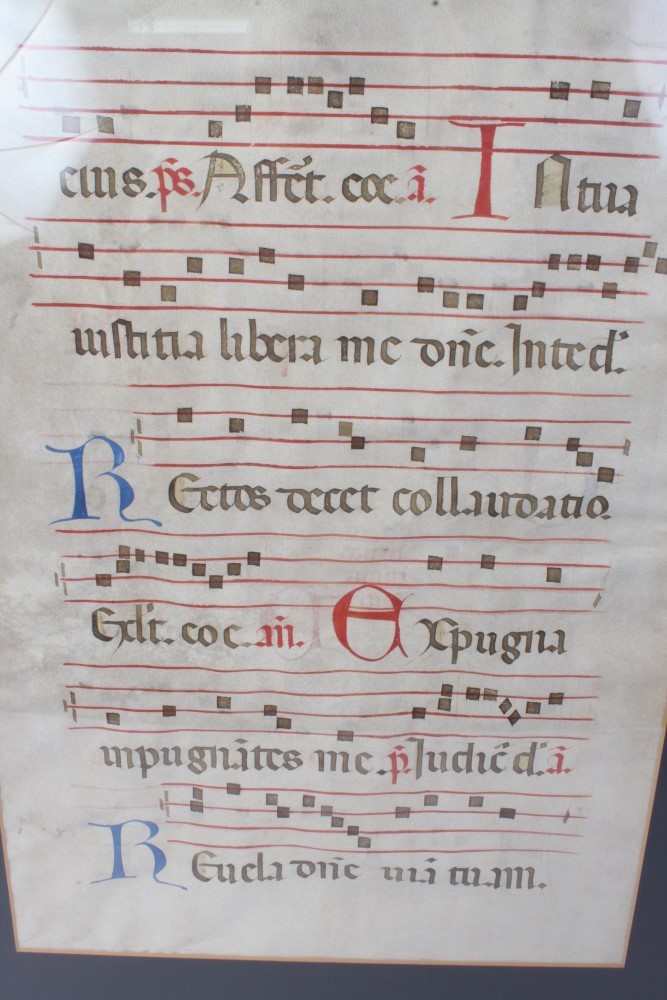 eius. p̄s. Affer̄t. coc. ā. In tua
iustitia libera me dn̄e. In te d̾.
Rectos decet collaudatio.
Exl̾t. coc. añ. Expugna
inpugnātes me. p̄. Iudic̄ d̾. ā.
Reuela dn̄e uiā tuam.